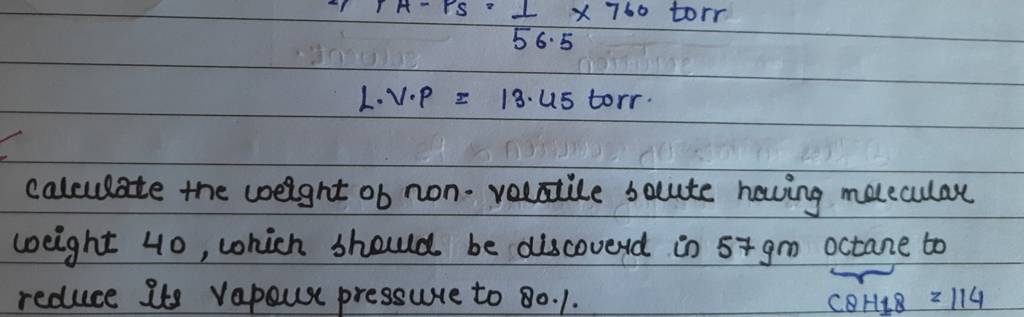 PA - Ps = 1 × 760 torr
56.5
L.V.P = 13.45 torr.
calculate the weight of non-volatile solute having molecular
weight 40, which should be discoverd in 57gm octane to
reduce its vapour pressure to 80.%.
C8H18 = 114